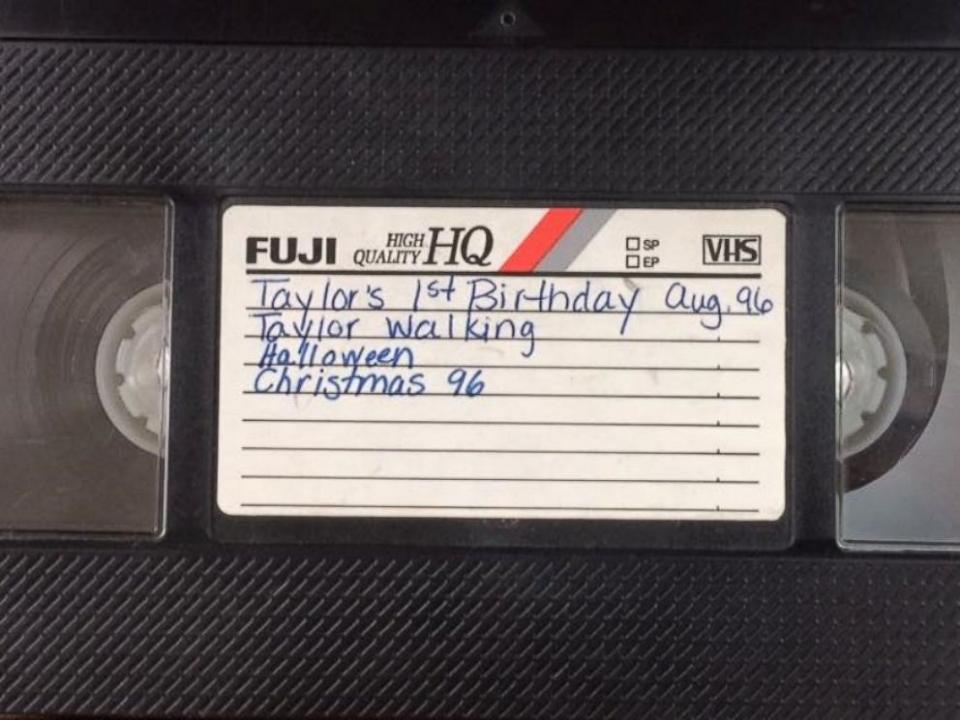 FUJI HIGH QUALITY HQ SP VHS
EP
Taylor's 1st Birthday Aug. 96
Taylor walking
Halloween
Christmas 96